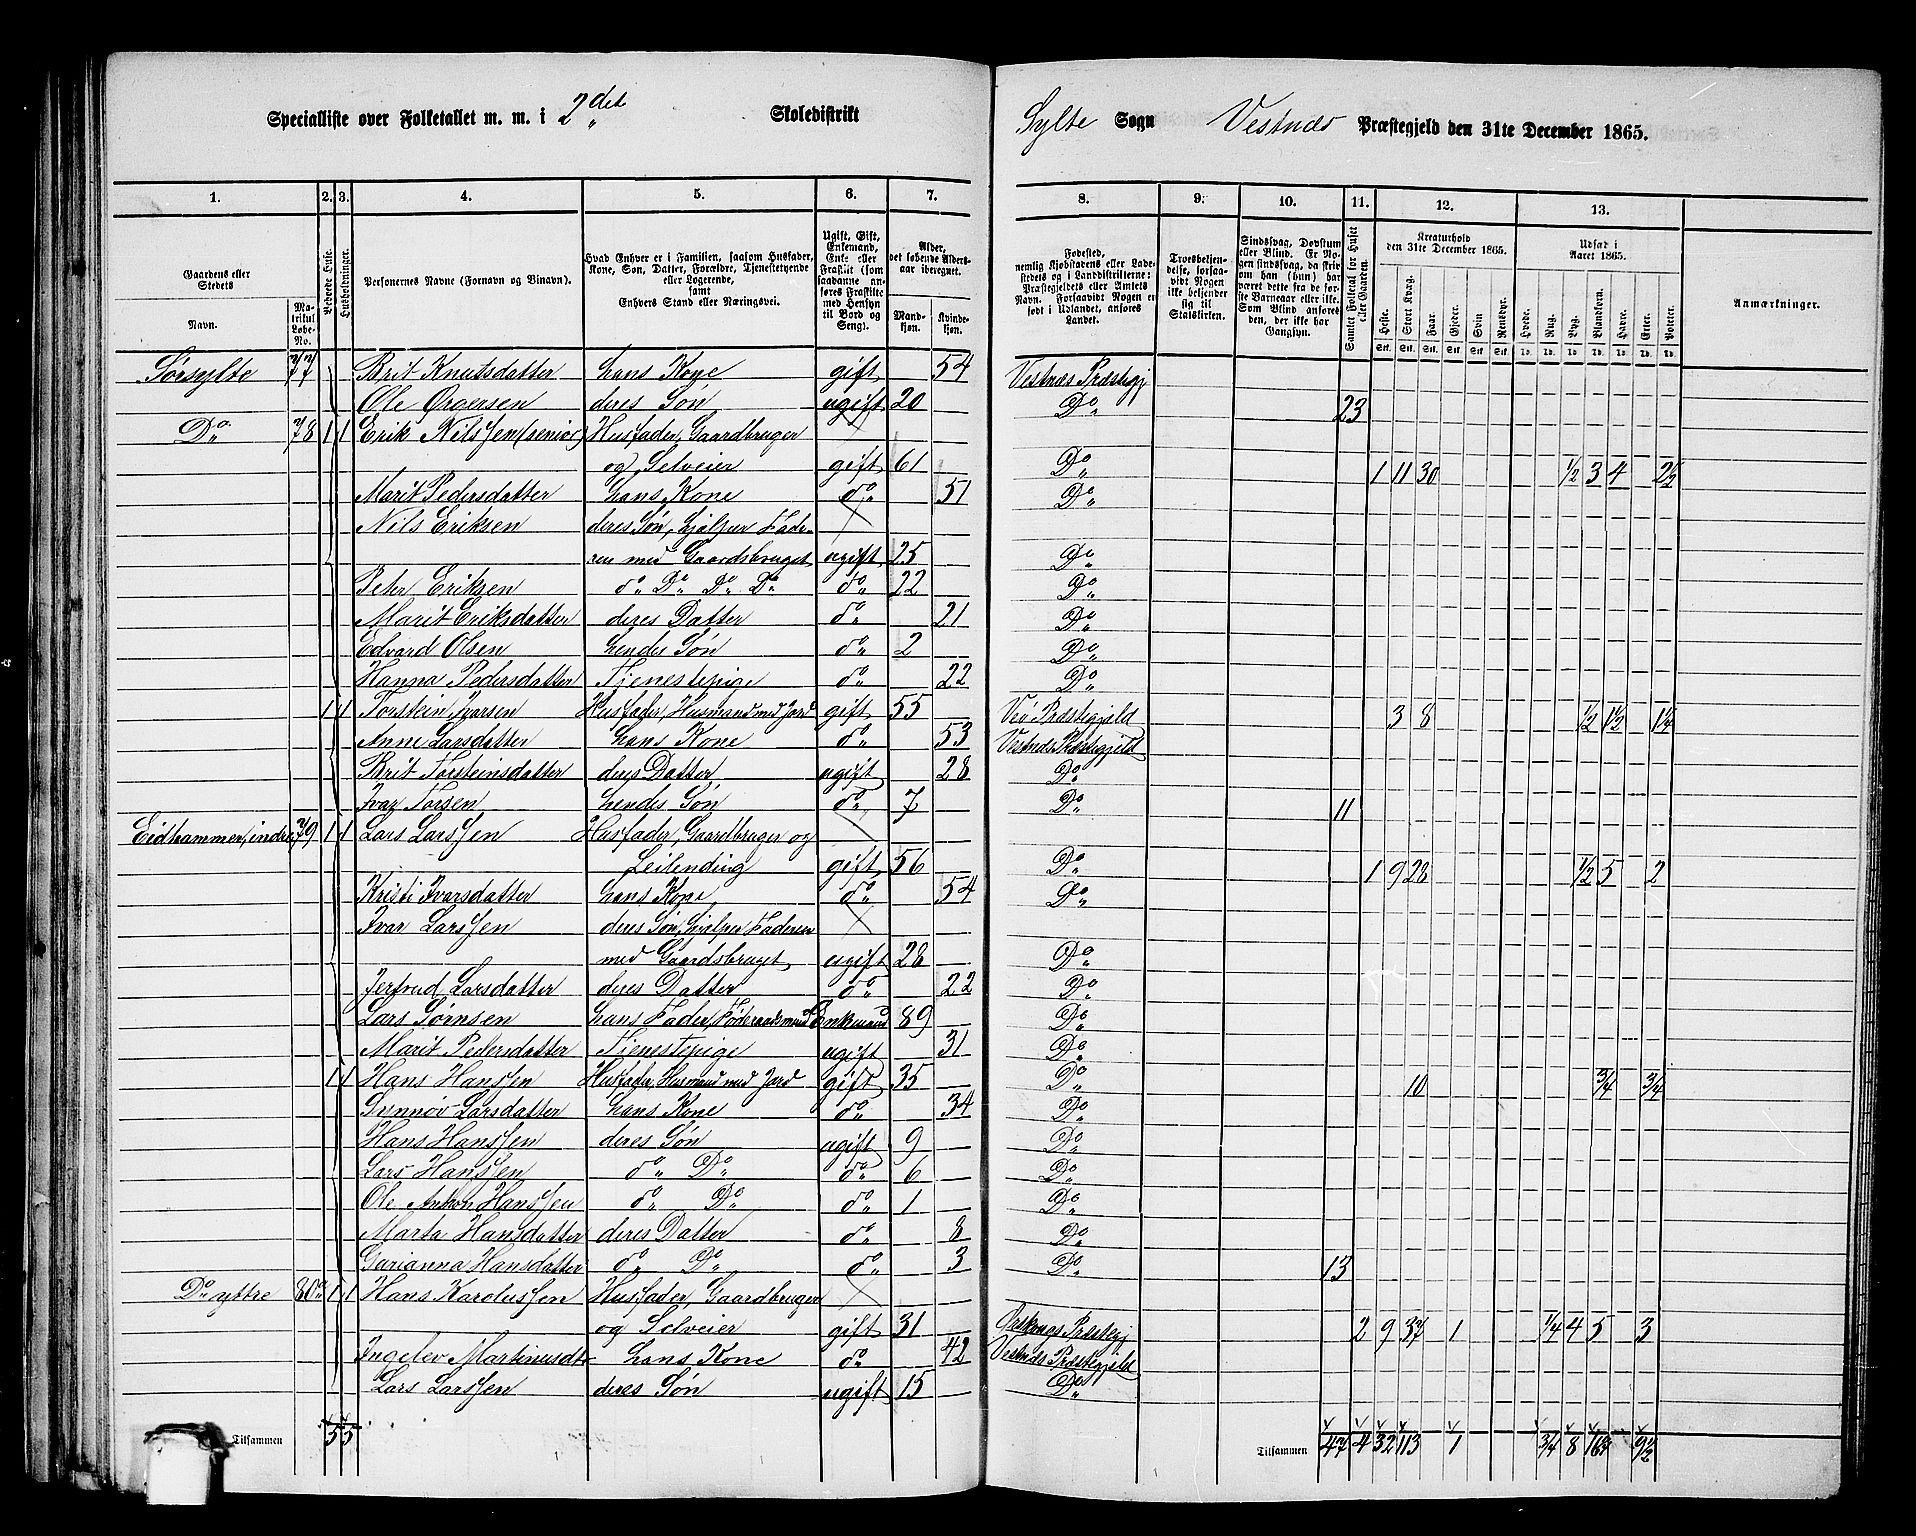 Specialliste over Folketallet m. m. i 2det Skoledistrikt
Sylte Sogn Vestnæs Præstegjeld den 31te December 1865.
1. 2. 3. 4. 5. 6. 7. 8. 9. 10. 11. 12. 13.
Gaardens eller Stedets
Navn.
Matrikul Løbe-No.
Beboede Huse.
Husholdninger.
Personernes Navne (Fornavn og Binavn).
Hvad Enhver er i Familien, saasom Husfader, Kone, Søn, Datter, Forældre, Tjenestetyende eller Logerende, samt Enhvers Stand eller Næringsvei.
Ugift, Gift, Enkemand, Enke eller Fraskilt (som saadanne anføres Fraskilte med Hensyn til Bord og Seng).
Alder, det løbende Alders-aar iberegnet.
Mandkjøn. Kvindekjøn.
Fødested, nemlig Kjøbstadens eller Ladestedets og i Landdistrikterne: Præstegjeldets eller Amtets Navn. Forsaavidt Nogen er født i Udlandet, anføres Landet.
Troesbekjendelse, forsaavidt Nogen ikke bekjender sig til Statskirken.
Sindssvag, Døvstum eller Blind. Er Nogen sindssvag, da skrives dette fra de første Barneaar eller ikke. Som Blind anføres den, der ikke har Gangsyn.
Samlet Folketal for Huset eller Gaarden.
Kreaturhold den 31te December 1865.
Heste. Stort Kvæg. Faar. Gjeder. Svin. Rensdyr.
Udsæd i Aaret 1865.
Hvede. Rug. Byg. Blandkorn. Havre. Erter. Poteter.
Anmærkninger.
Sørsylte 77 Brit Knutsdatter hans Kone gift 54 Vestnæs Præstegj
Ole Ørgersen deres Søn ugift 20 Do 23
Do 78 1 1 Erik Nilssen (senior) Husfader, Gaardbruger
og Selveier gift 61 Do 1 11 30 1/2 3 4 2 1/2
Marit Pedersdatter hans Kone do 51 Do
Nils Eriksen deres Søn, hjelper Fade-
ren med Gaardsbruget ugift 25 Do
Peter Eriksen do Do Do Do do 22 Do
Marit Eriksdatter deres Datter do 21 Do
Edvard Olsen hendes Søn do 2 Do
Hanna Pedersdatter Tjenestepige do 22 Do
1 1 Torstein Ivarsen Husfader, Husmand med Jord gift 55 Veø Præstegjeld 3 8 1/2 1 1/2 1 1/4
Anne Larsdatter hans Kone do 53 Vestnæs Præstegjeld
Brit Torsteinsdatter deres Datter ugift 28 Do
Ivar Torsen hendes Søn do 7 Do 11
Eidhammer, indre 79 1 1 Lars Larssen Husfader, Gaardbruger og
Leilending gift 56 Do 1 9 28 1/2 5 2
Kristi Ivarsdatter hans Kone do 54 Do
Ivar Larssen deres Søn, hjelper Faderen
med Gaardsbruget ugift 28 Do
Jertrud Larsdatter deres Datter do 22 Do
Lars Tørnsen hans Fader, Føderaadsmand Enkmand 89 Do
Marit Pedersdatter Tjenestepige ugift 31 Do
1 1 Hans Hanssen Husfader, Husmand med Jord gift 35 Do 10 3/4 3/4
Synnøv Larsdatter hans Kone do 34 Do
Hans Hanssen deres Søn ugift 9 Do
Lars Hanssen do Do do 6 Do
Ole Anton Hanssen do Do do 1 Do
Marta Hansdatter deres Datter do 8 Do
Garianna Hansdatter do Do do 3 Do 13
Do yttre 80 1 1 Hans Karolussen Husfader, Gaardbruger
og Selveier gift 31 Præstegj 2 9 37 1 1/4 4 5 3
Ingelev Martinusdtr hans Kone do 42 Vestnæs Præstegjeld
Lars Larssen deres Søn ugift 15 Do
Tilsammen 5 5
Tilsammen 47 4 32 113 1 3/4 8 9 1/2